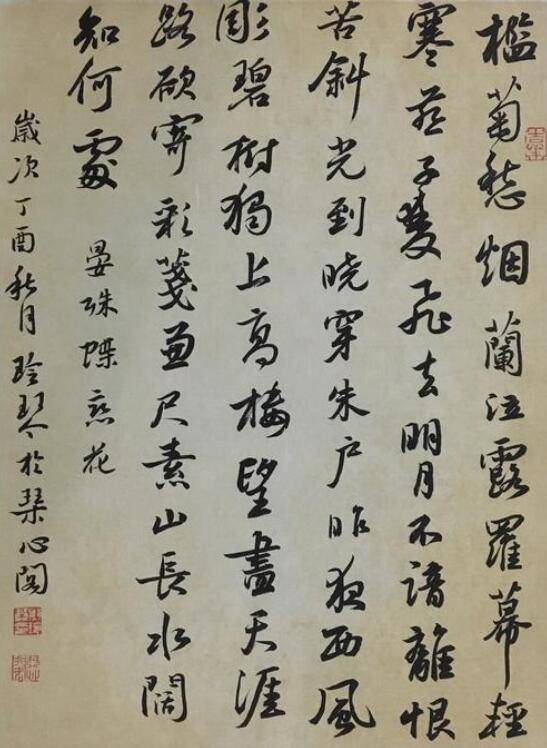 檻菊愁烟蘭泣露羅幕輕
寒燕子雙飛去明月不諳離恨
苦斜光到曉穿朱戶昨夜西風
彫碧樹獨上高樓望盡天涯
路欲寄彩箋兼尺素山長水闊
知何處
晏殊蝶戀花
歲次丁酉秋月玲琴於琴心閣